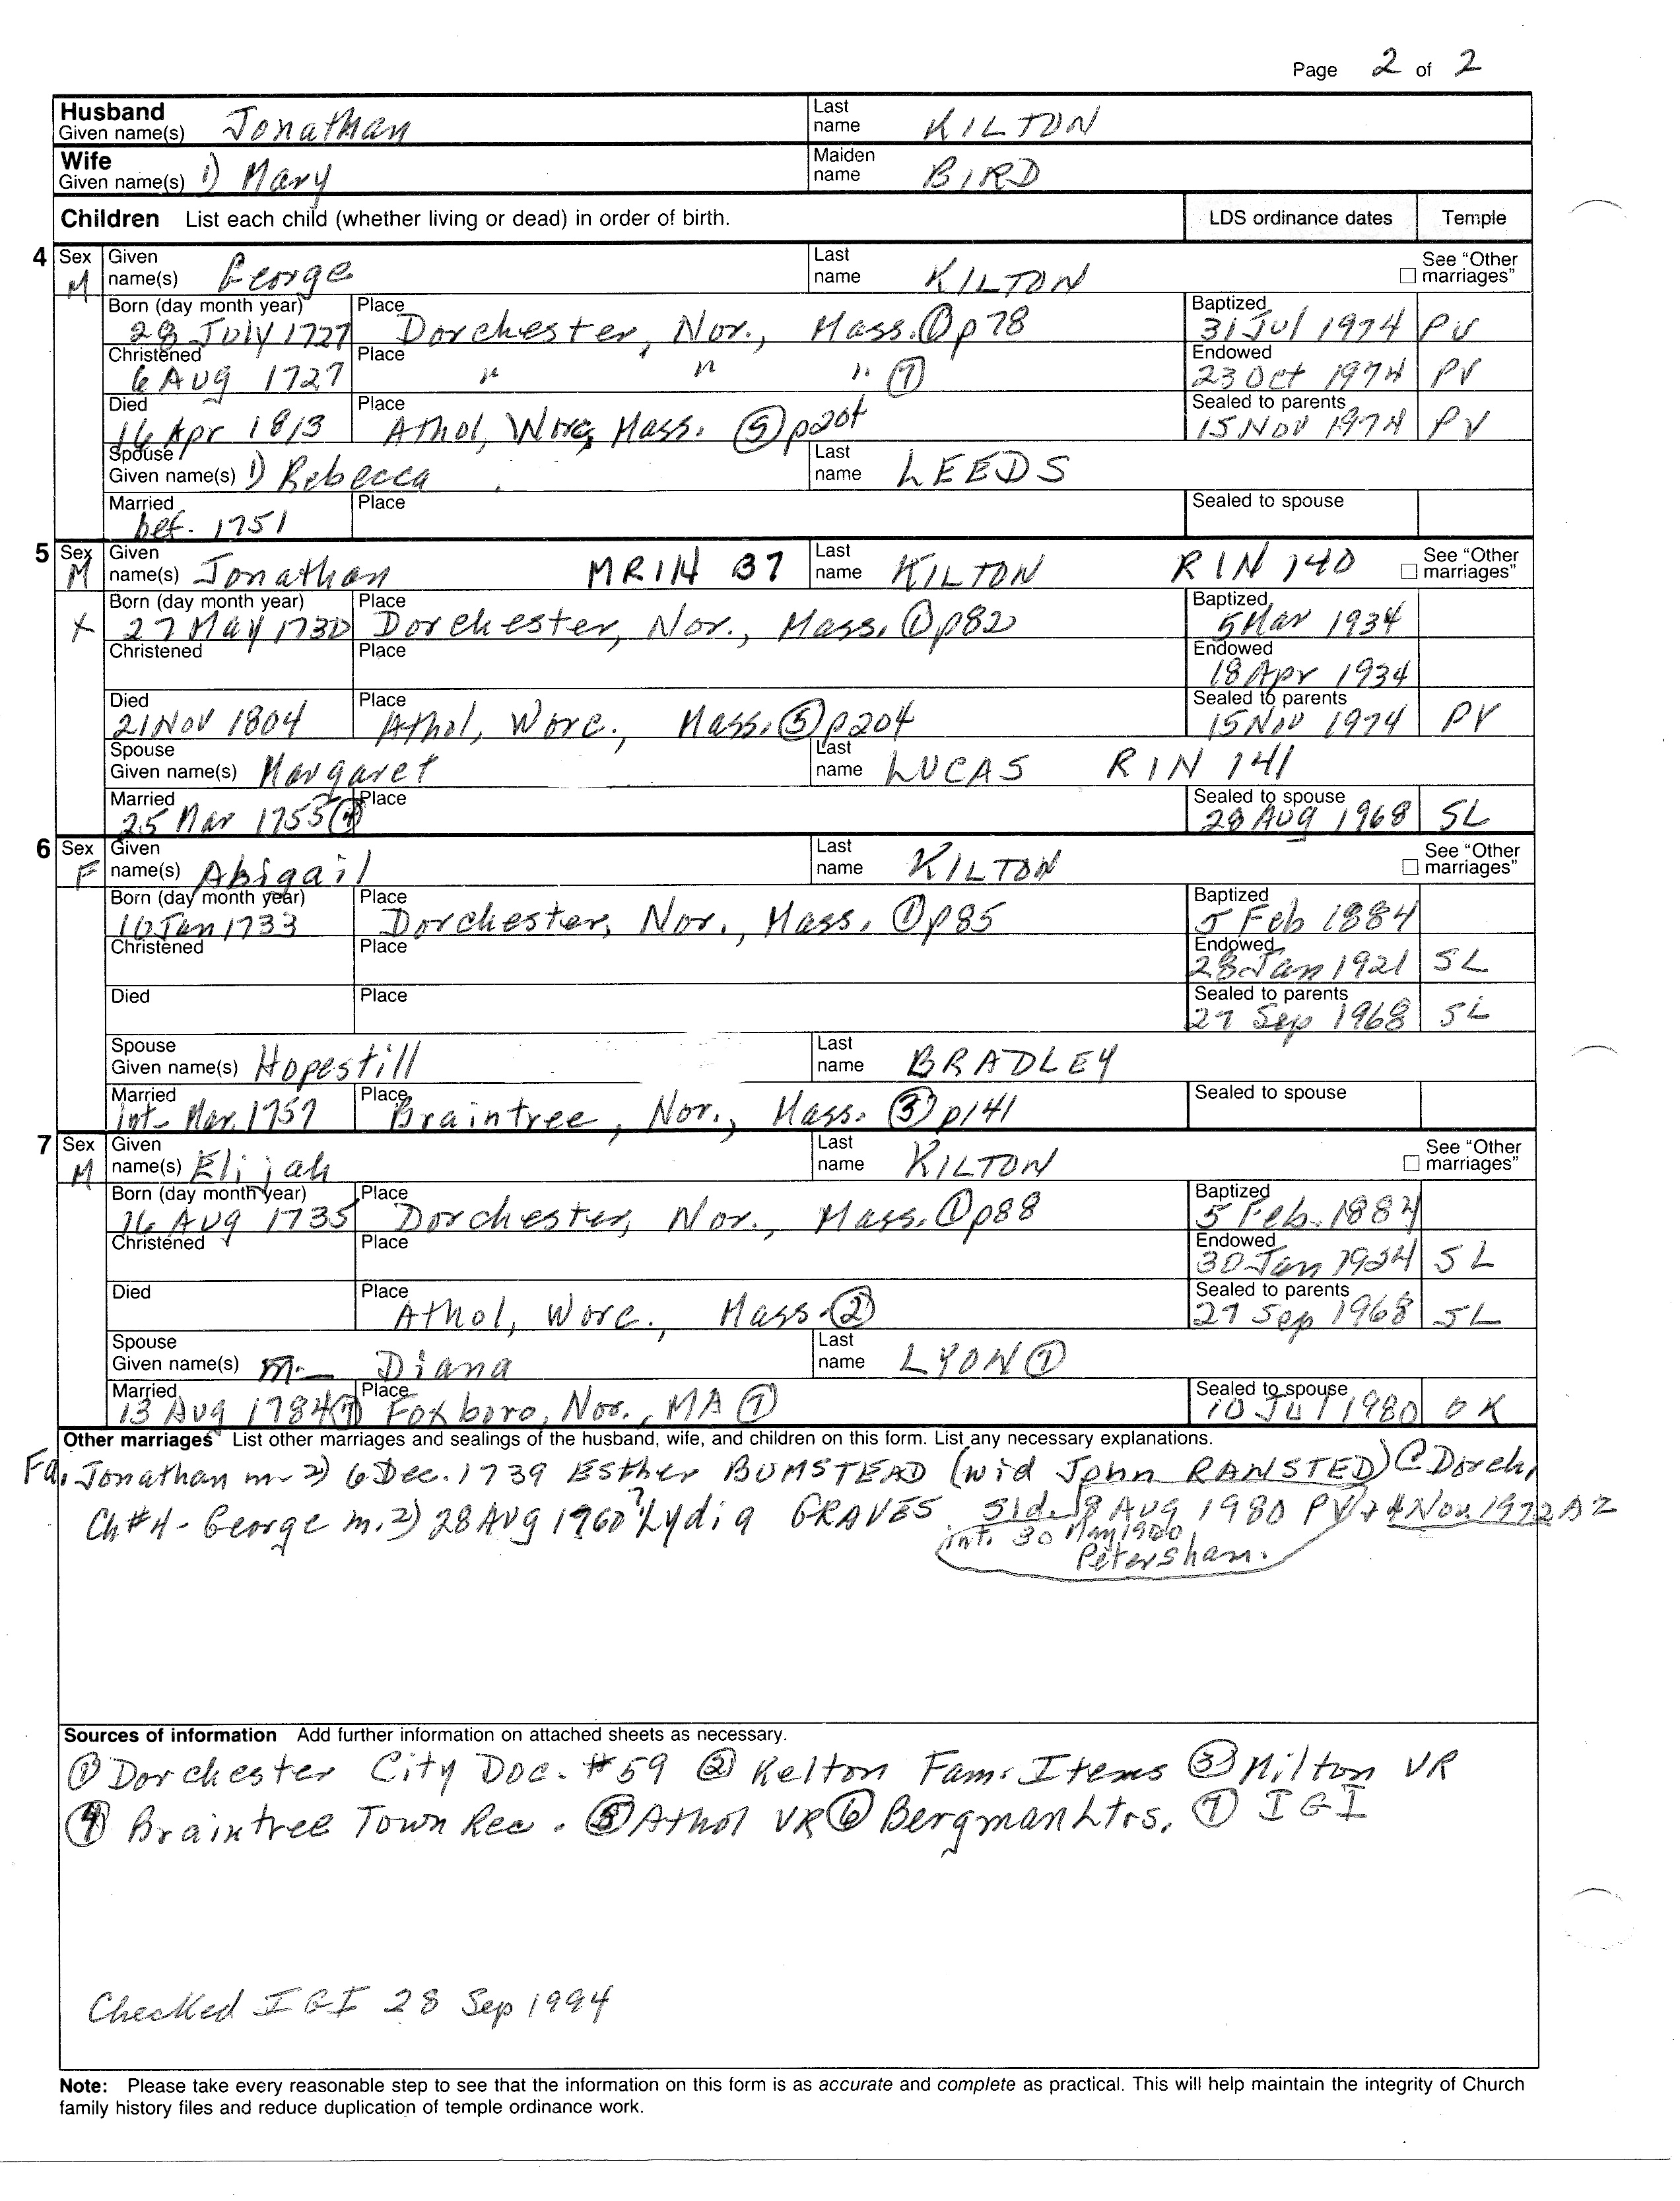 Page 2 of 2
Husband Given name(s) Jonathan Last name KILTON
Wife Given name(s) 1) Mary Maiden name BIRD
Children List each child (whether living or dead) in order of birth. LDS ordinance dates Temple
4 Sex M Given name(s) George Last name KILTON See "Other marriages"
Born (day month year) 28 July 1727 Place Dorchester, Nor., Mass. ① p78 Baptized 31 Jul 1974 PV
Christened 6 Aug 1727 Place " " " ⑦ Endowed 23 Oct 1974 PV
Died 16 Apr 1813 Place Athol, Worc, Mass. ⑤ p204 Sealed to parents 15 Nov 1974 PV
Spouse Given name(s) 1) Rebecca Last name LEEDS
Married bef. 1751 Place Sealed to spouse
5 Sex M Given name(s) Jonathan MRIN 37 Last name KILTON RIN 140 See "Other marriages"
X Born (day month year) 27 May 1730 Place Dorchester, Nor., Mass. ① p82 Baptized 5 Mar 1934
Christened Place Endowed 18 Apr 1934
Died 21 Nov 1804 Place Athol, Worc., Mass. ⑤ p204 Sealed to parents 15 Nov 1974 PV
Spouse Given name(s) Margaret Last name LUCAS RIN 141
Married 25 Mar 1755 ④ Place Sealed to spouse 28 Aug 1968 SL
6 Sex F Given name(s) Abigail Last name KILTON See "Other marriages"
Born (day month year) 16 Jan 1733 Place Dorchester, Nor., Mass. ① p85 Baptized 5 Feb 1884
Christened Place Endowed 28 Jan 1921 SL
Died Place Sealed to parents 27 Sep 1968 SL
Spouse Given name(s) Hopestill Last name BRADLEY
Married Int- Mar. 1757 Place Braintree, Nor., Mass. ③ p141 Sealed to spouse
7 Sex M Given name(s) Elijah Last name KILTON See "Other marriages"
Born (day month year) 16 Aug 1735 Place Dorchester, Nor., Mass. ① p88 Baptized 5 Feb. 1884
Christened Place Endowed 30 Jan 1924 SL
Died Place Athol, Worc., Mass. ② Sealed to parents 27 Sep 1968 SL
Spouse Given name(s) m- Diana Last name LYON ⑦
Married 13 Aug 1784 ⑦ Place Foxboro, Nor., MA ⑦ Sealed to spouse 10 Jul 1980 OK
Other marriages List other marriages and sealings of the husband, wife, and children on this form. List any necessary explanations.
Fa. Jonathan m- 2) 6 Dec. 1739 Esther BUMSTEAD (wid John RANSTED) @ Dorch,
Ch#4 - George m. 2) 28 Aug 1960? Lydia GRAVES Sld. 8 Aug 1980 PV + 4 Nov 1972 AZ
int. 30 May
Petersham.
Sources of information Add further information on attached sheets as necessary.
① Dorchester City Doc. #59 ② Kelton Fam. Items ③ Milton VR
④ Braintree Town Rec. ⑤ Athol VR ⑥ Bergman Ltrs. ⑦ IGI
Checked IGI 28 Sep 1994
Note: Please take every reasonable step to see that the information on this form is as accurate and complete as practical. This will help maintain the integrity of Church
family history files and reduce duplication of temple ordinance work.